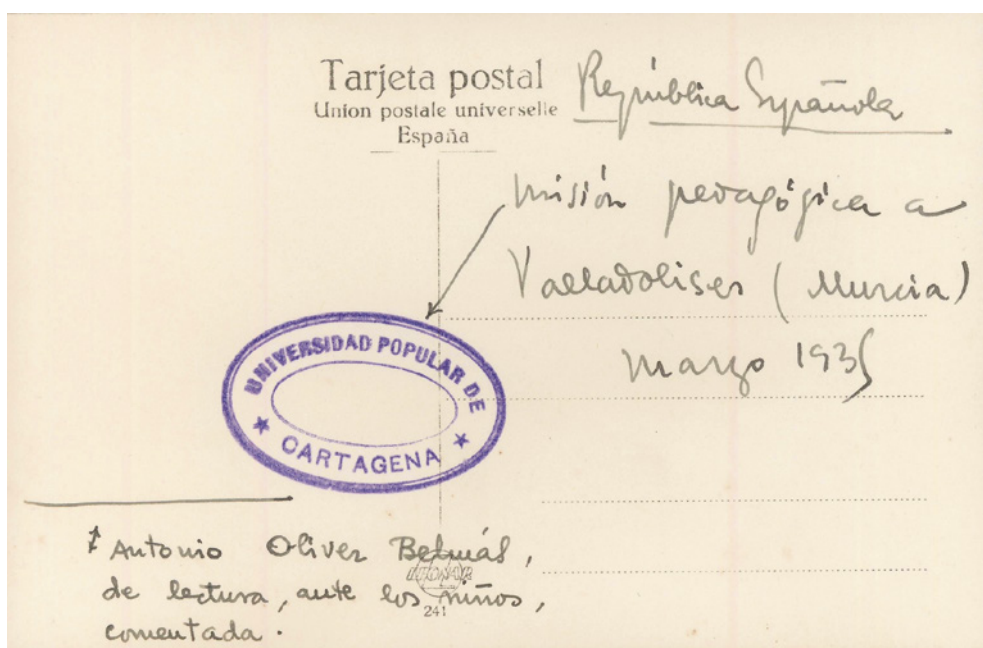 Tarjeta postal
Union postale universelle
España
República Española
Misión pedagógica a
Valladolises (Murcia)
marzo 1935
UNIVERSIDAD POPULAR DE
★ CARTAGENA ★
Antonio Oliver Belmás,
de lectura, ante los niños,
comentada.
241